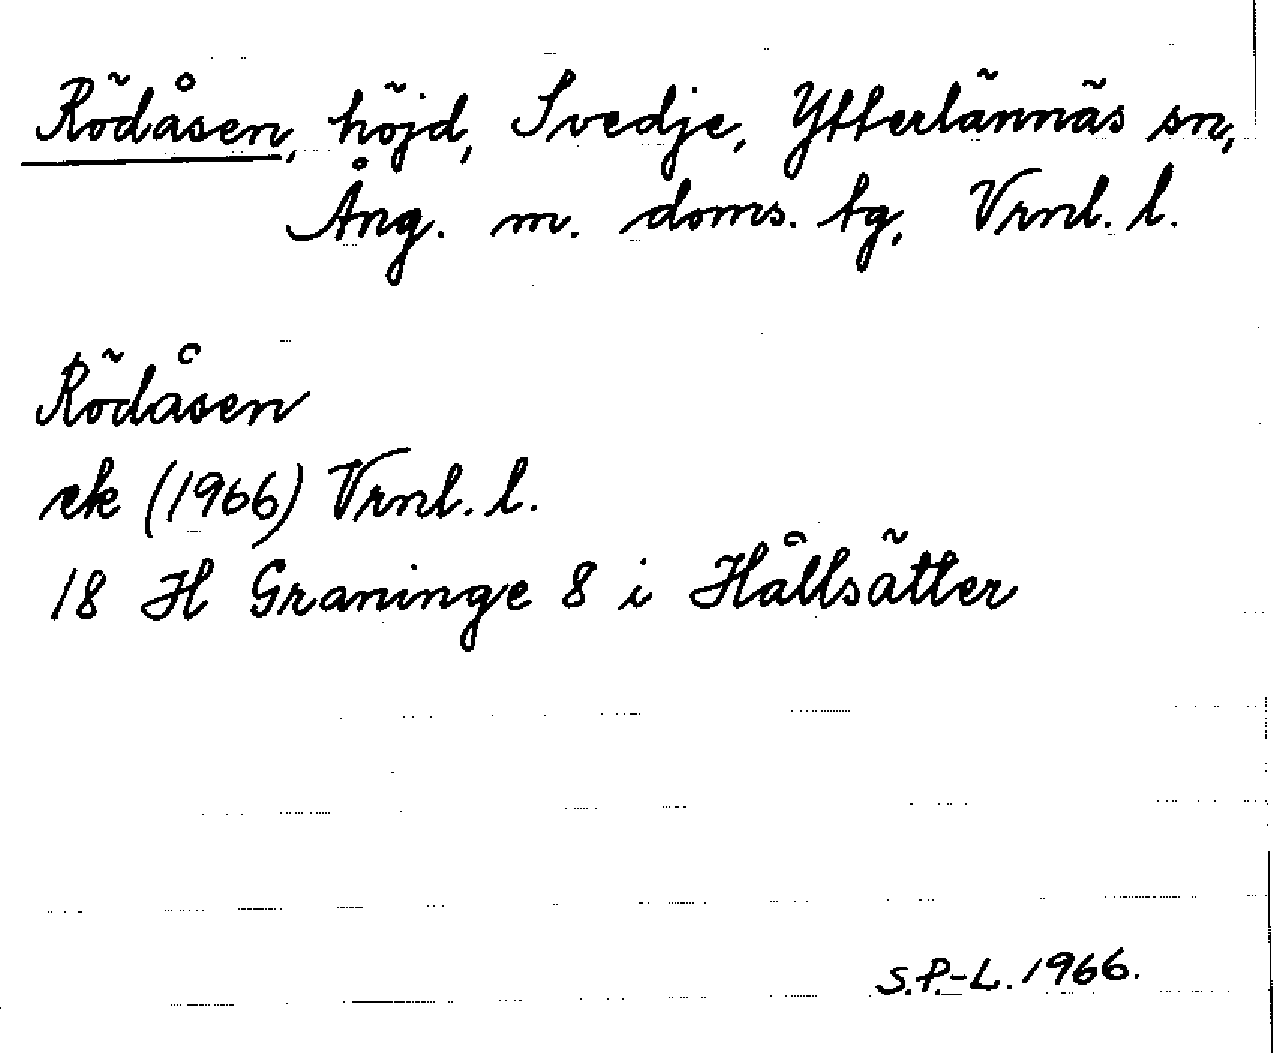 Rödåsen, höjd, Svedje, Ytterlännäs sn,
Ång. m. doms. tg, Vrnl. l.
Rödåsen
ek (1966) Vrnl. l.
18 H Graninge 8 i Hållsätter
S.P.-L. 1966.